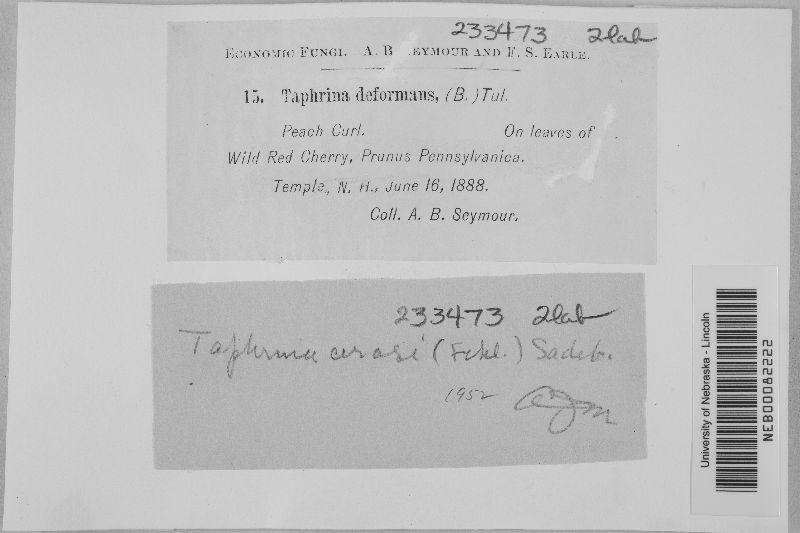 233473 2lab
ECONOMIC FUNGI. A. B. SEYMOUR AND F. S. EARLE.
15. Taphrina deformans, (B.) Tul.
Peach Curl. On leaves of
Wild Red Cherry, Prunus Pennsylvanica.
Temple, N. H., June 16, 1888.
Coll. A. B. Seymour.
233473 2lab
Taphrina cerasi (Fckl.) Sadeb.
1952
University of Nebraska - Lincoln
NEB00082222